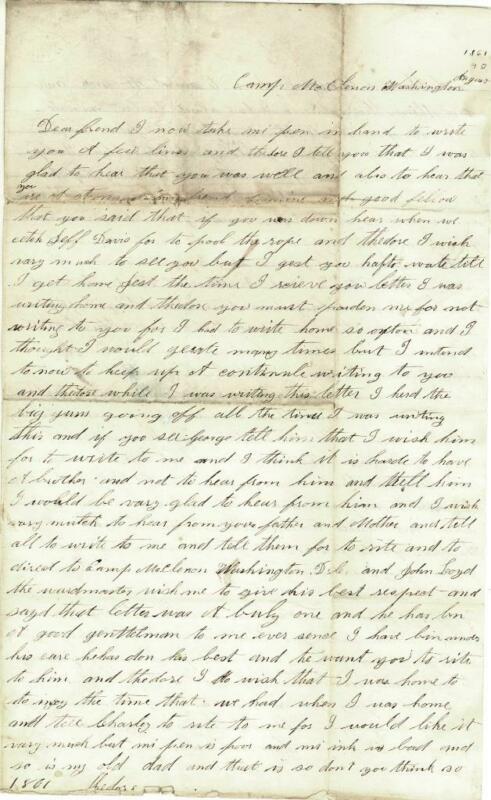 1861
August
Camp McClenon Washington
Dear frend I now take mi pen in hand to write
you A few lines and thedore I tell you that I was
glad to hear that you was well and also to hear that
you
are at such good fellow
that you said that if you was down hear when we
cetch Jeff Davis for to pool the rope and thedore I wish
vary much to see you but I gest you hafto waite till
I get home gest the time I receve you letter I was
writing home and thedore you must parden me for not
writing to you for I had to write home so opton and I
thought I would many times but I intend
to now to keep up A continule writing to you
and thedore while I was writing this letter I herd the
big guns going off all the time I was writing
this and if you see George tell him that I wish him
for to write to me and I think it is harde to have
A brother and not to hear from him and thell him
I would be vary glad to hear from him and I wish
vary mutch to hear from your father and Mother and tell
all to write to me and tell them for to rite and to
direct to Camp McClenon Washington D.C. and John Loyd
the wardmaster wish me to give his best respeat and
sayd that letter was A buly one and he has bin
A good genttelman to me ever sence I have bin under
his care he has don his best and he want you to rite
to him and thedore I do wish that I was home to
the time that we had when I was home
and tell Charley to rite to me for I would like it
vary much but mi pen is poor and mi ink is bad and
so is my old dad and that is so don't you think so
1861 thedore